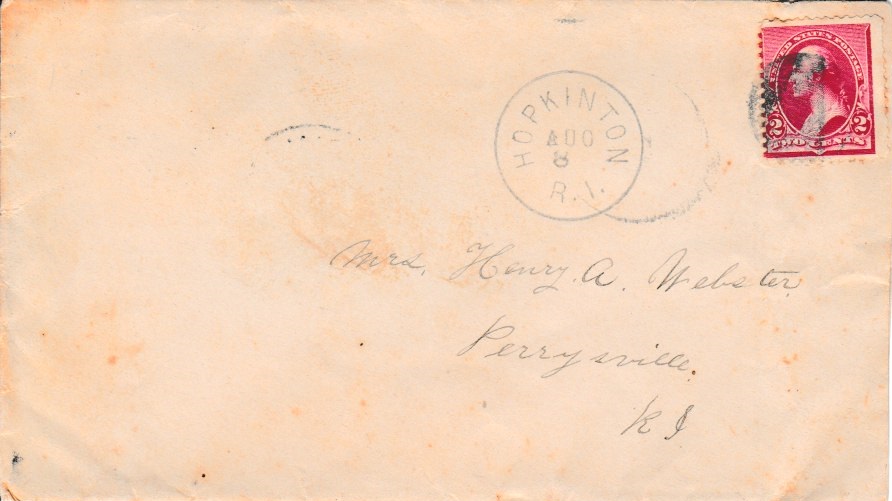 UNITED STATES POSTAGE
2 2
TWO CENTS
HOPKINTON
AUG
8
R.I.
Mrs. Henry. A. Webster,
Perrysville.
R I